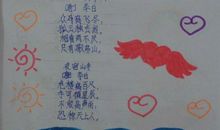 (唐) 李白
众鸟高飞尽,
孤云独去闲。
相看两不厌,
只有敬亭山。
夜宿山寺
(唐) 李白
危楼高百尺,
手可摘星辰。
不敢高声语,
恐惊天上人。